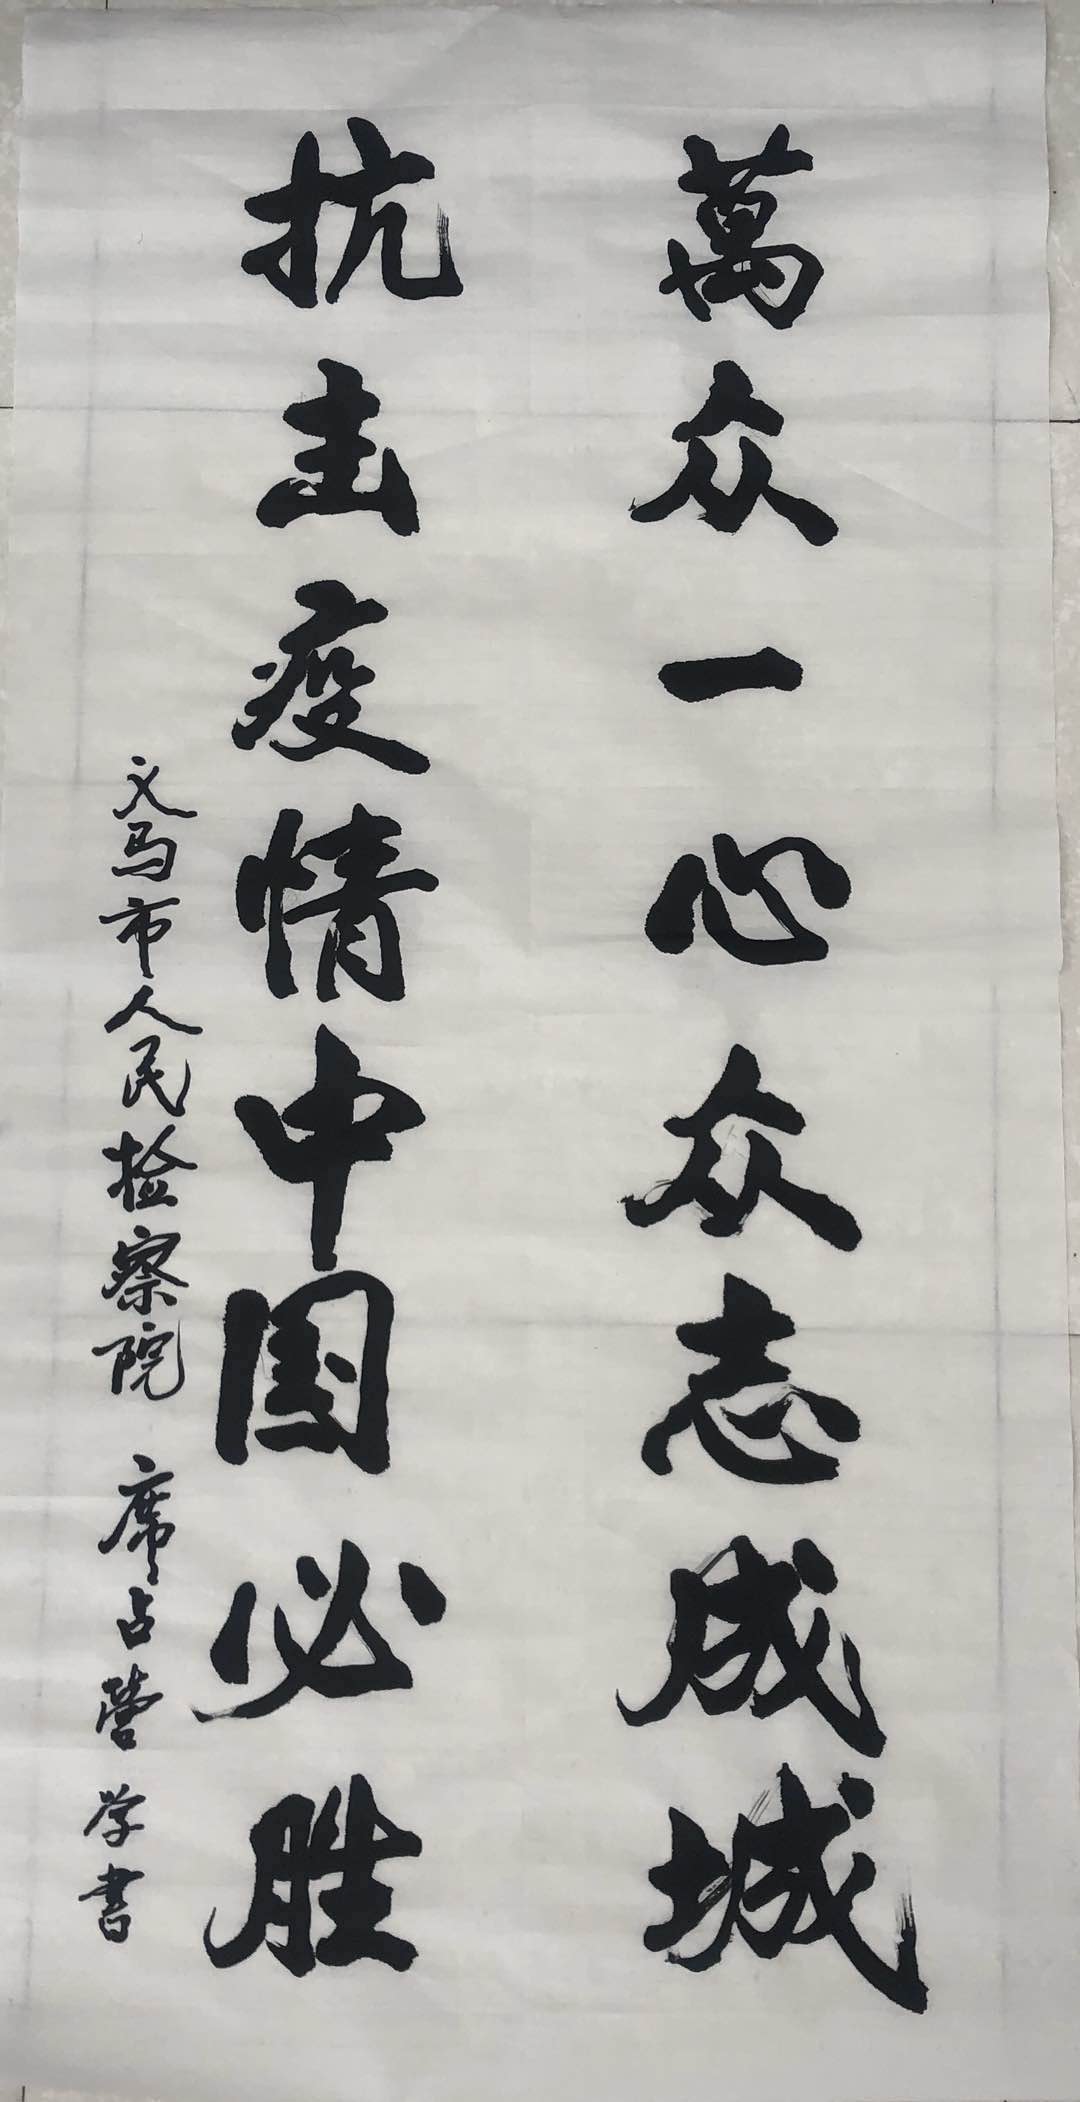 萬众一心众志成城
抗击疫情中国必胜
义马市人民检察院 席占营学書